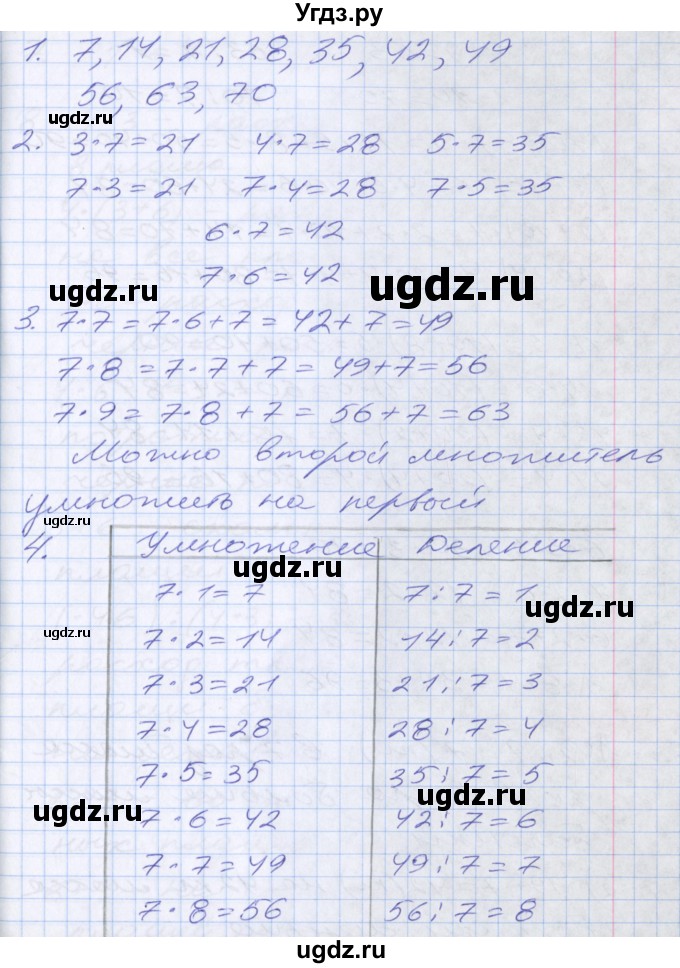 Угдз.ру
1. 7, 14, 21, 28, 35, 42, 49
56, 63, 70
ugdz.ru
2. 3·7=21 4·7=28 5·7=35
ugdz.ru
7·3=21 7·4=28 7·5=35
6·7=42
7·6=42
ugdz.ru ugdz.ru
3. 7·7=7·6+7=42+7=49
7·8=7·7+7=49+7=56
7·9=7·8+7=56+7=63
Можно второй множитель
умножить на первый
ugdz.ru
4. Умножение Деление
ugdz.ru
7·1=7 7:7=1
ugdz.ru
7·2=14 14:7=2
ugdz.ru
7·3=21 21:7=3
7·4=28 28:7=4
7·5=35 35:7=5
ugdz.ru ugdz.ru
7·6=42 42:7=6
7·7=49 49:7=7
7·8=56 56:7=8
ugdz.ru